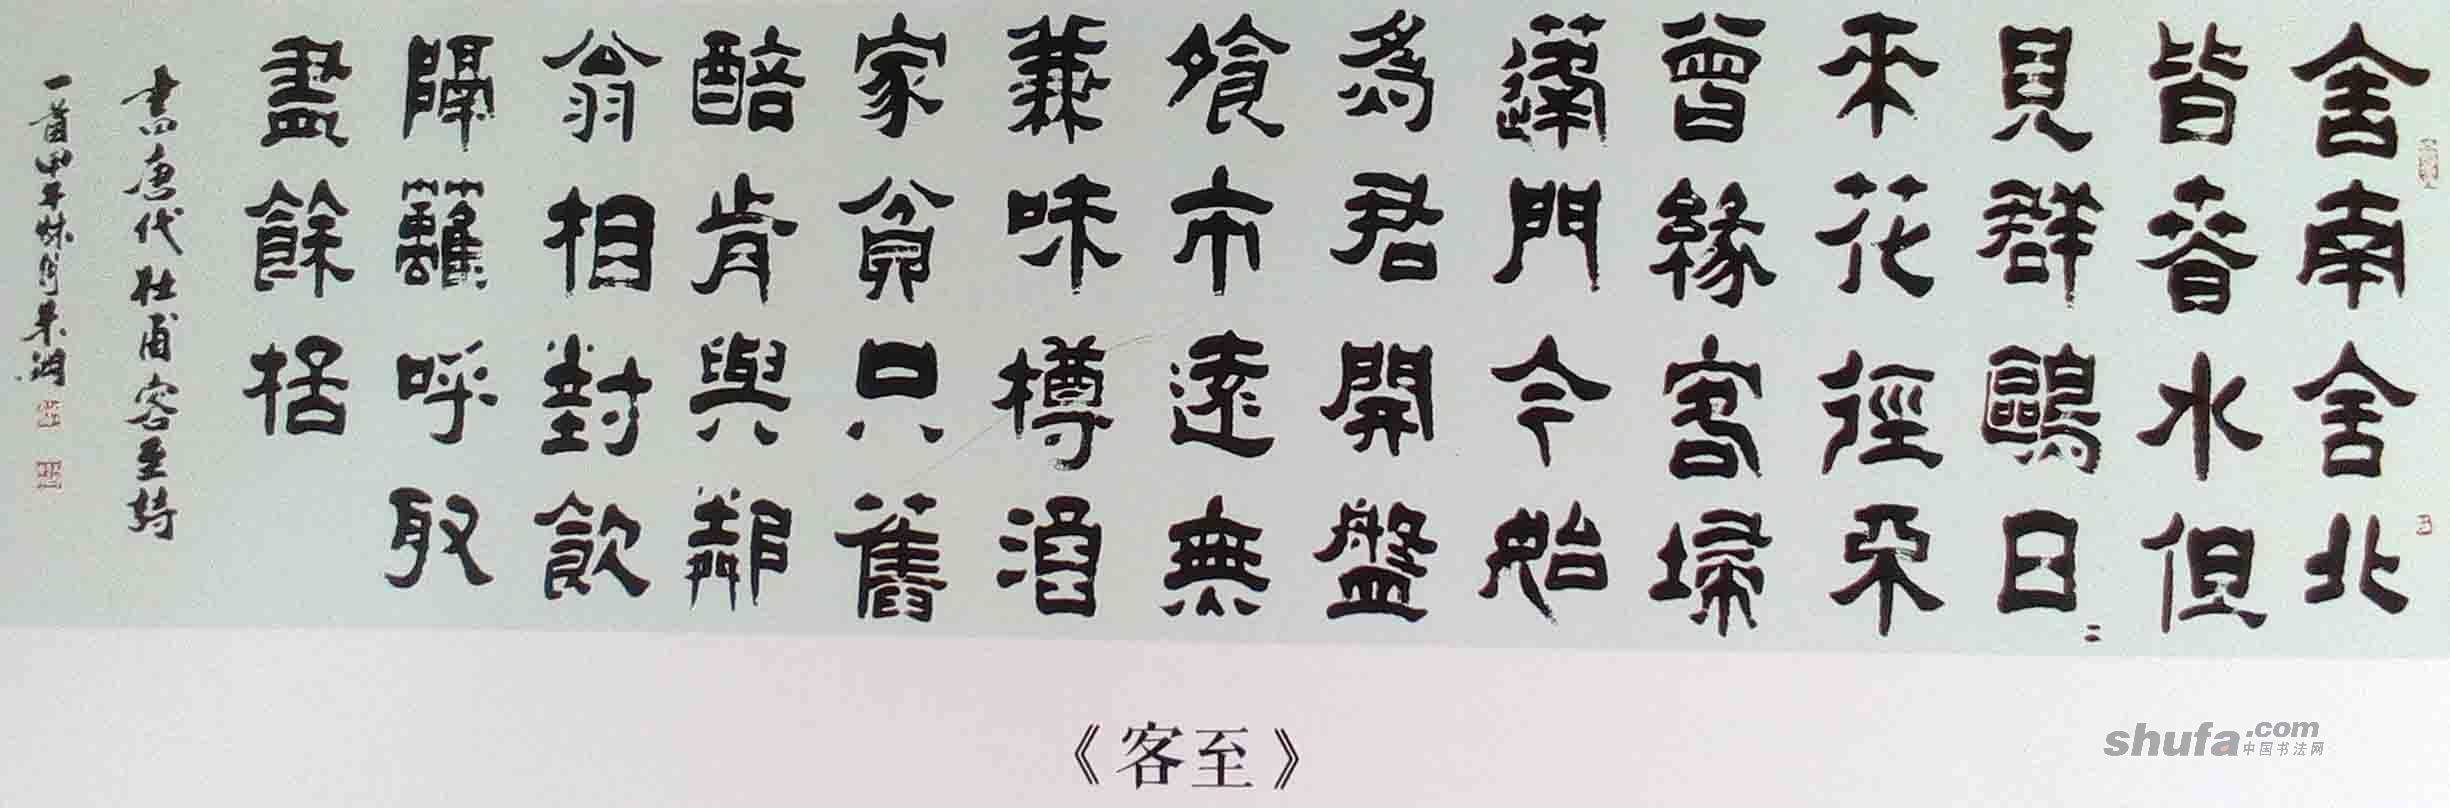 舍南舍北
皆春水但
見群鷗日二
来花徑不
曾緣客埽
蓬門今始
爲君開盤
飱市遠無
兼味樽酒
家貧只舊
醅肯與鄰
翁相對飲
隔籬呼取
盡餘桮
書唐代杜甫客至詩
一首甲午秋月
《客至》
shufa.com
中国书法网